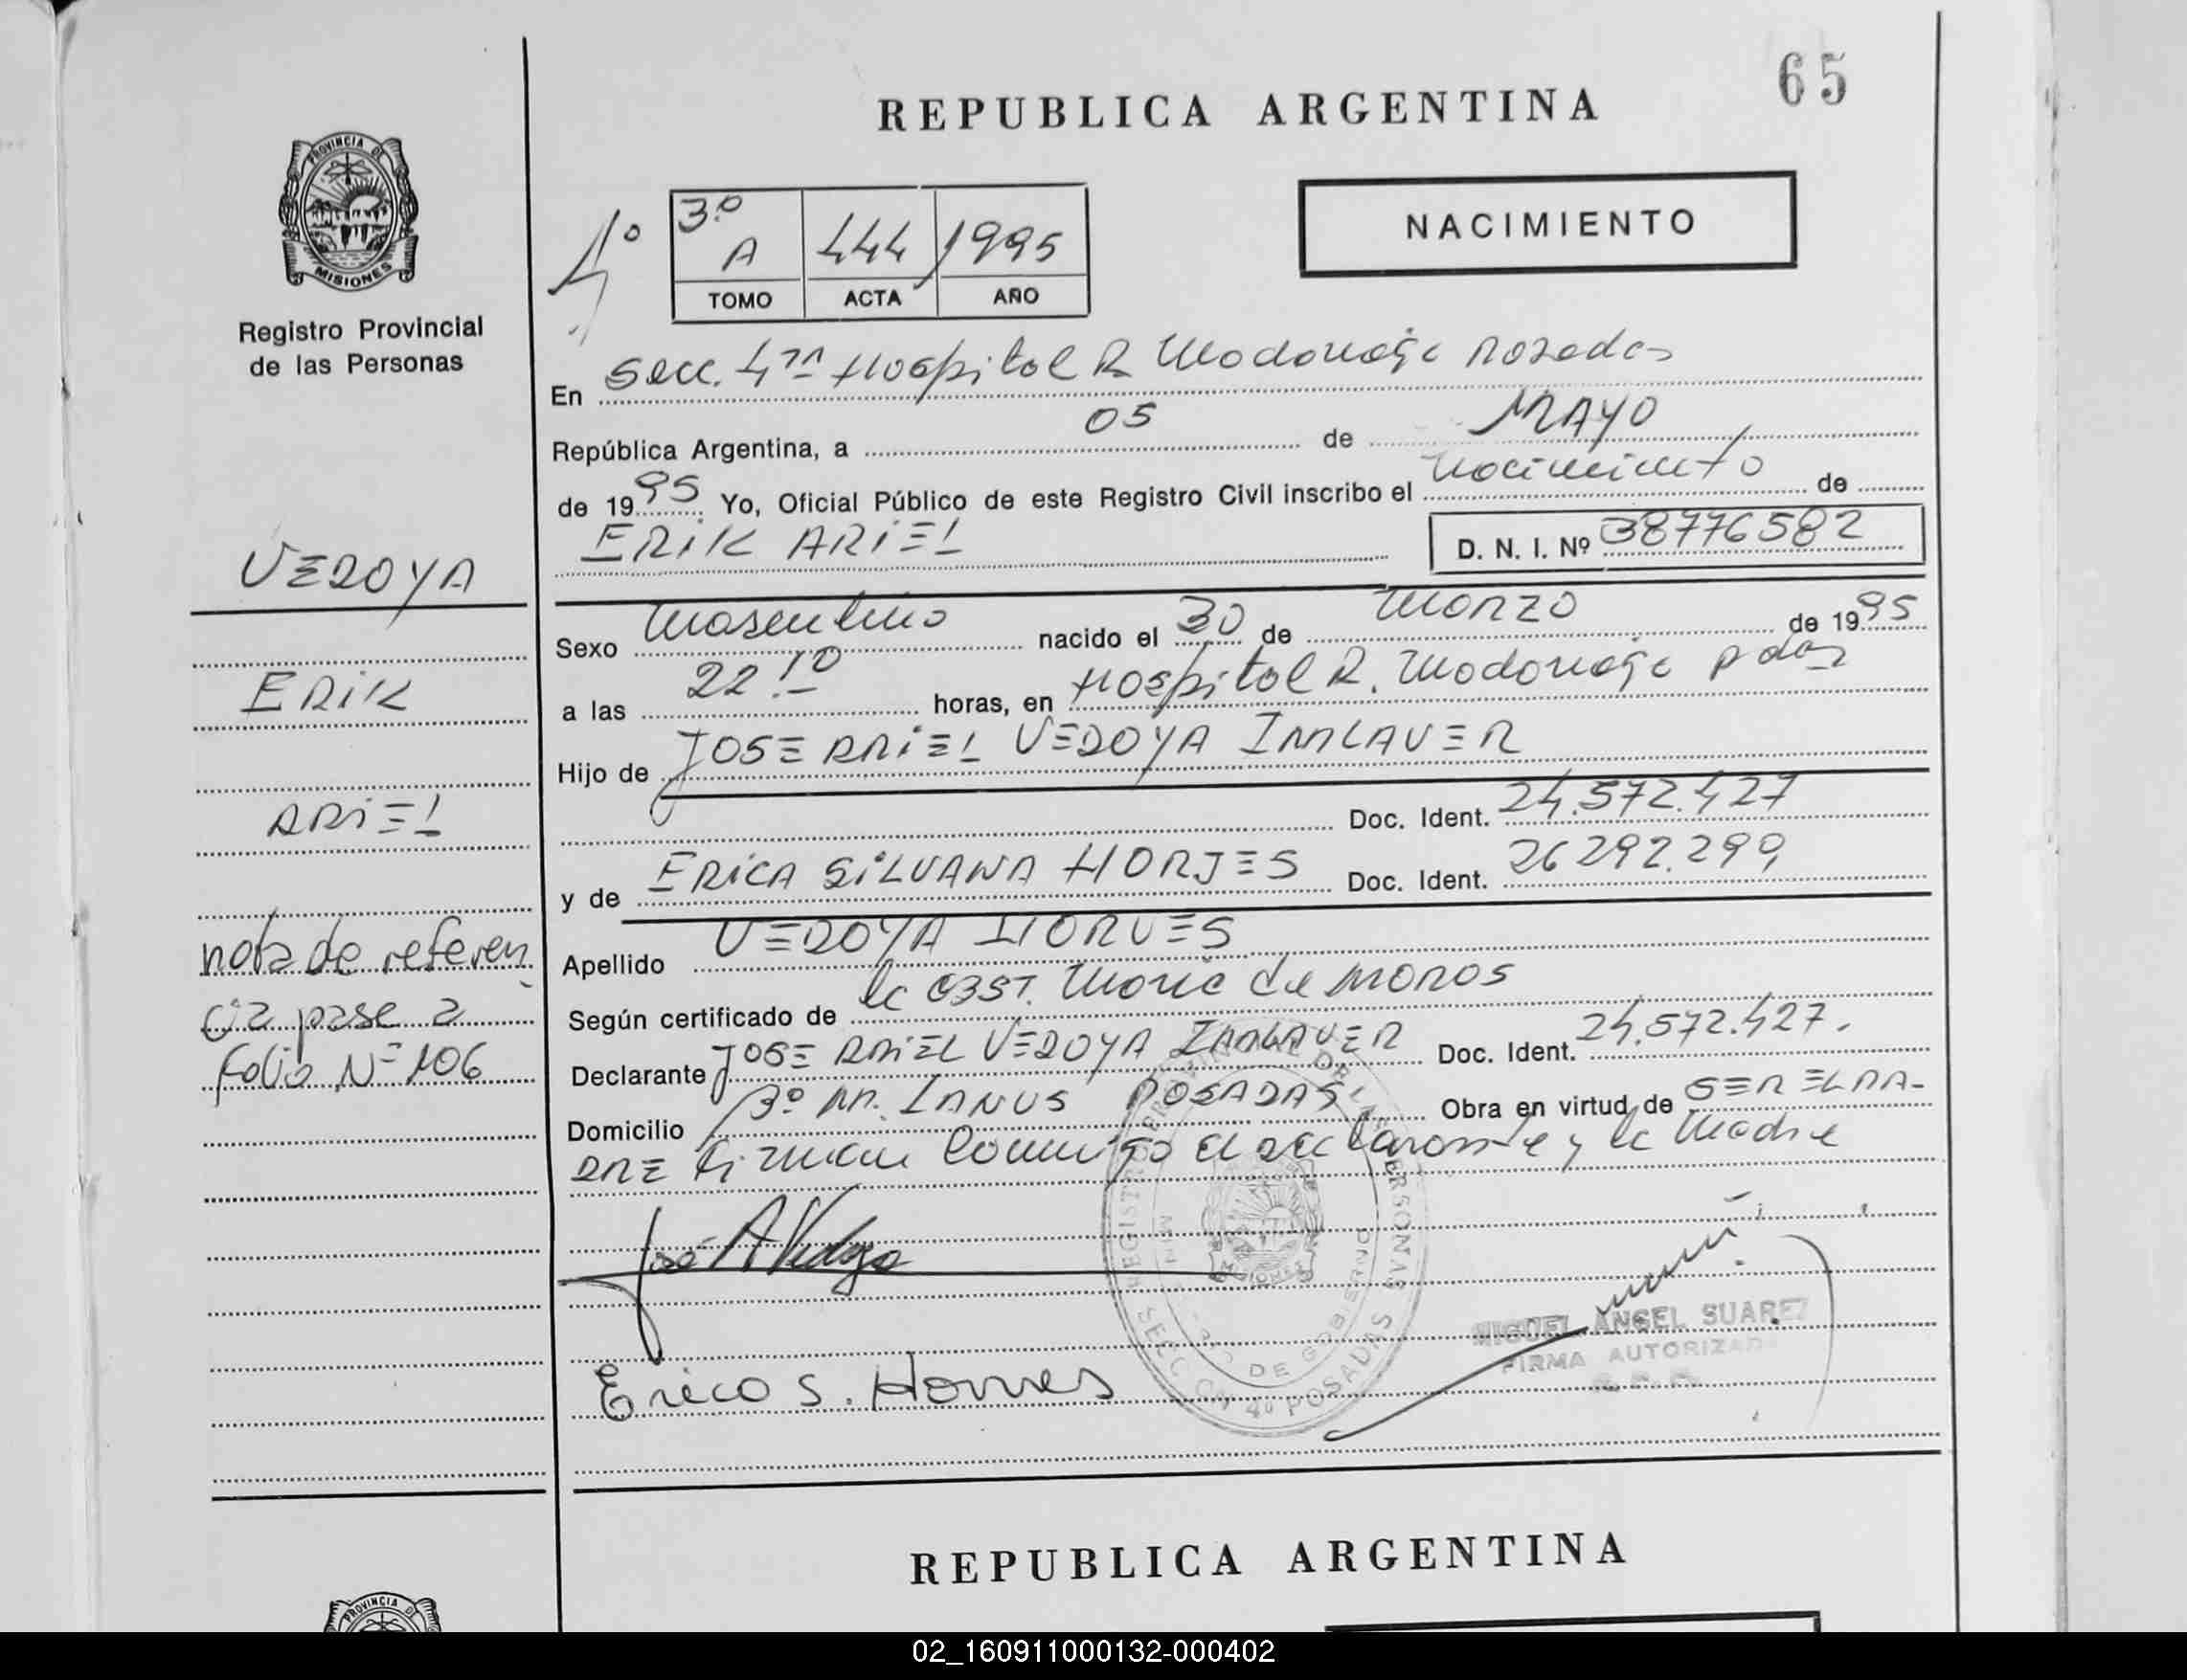 65
REPUBLICA ARGENTINA
PROVINCIA DE
MISIONES
Registro Provincial
de las Personas
4º
3º
A 444 1995
TOMO ACTA AÑO
NACIMIENTO
En Secc. 4ta Hospital R Madariaga Posadas
República Argentina, a 05 de MAYO
de 1995 Yo, Oficial Público de este Registro Civil inscribo el nacimiento de
ERIK ARIEL D. N. I. Nº 38776582
VEDOYA
ERIK
ARIEL
nota de referen
cia pase a
folio Nº 106
Sexo Masculino nacido el 30 de Marzo de 1995
a las 22.10 horas, en Hospital R. Madariaga Pdas
Hijo de JOSE ARIEL VEDOYA
Doc. Ident. 24.572.427
y de ERICA SILVANA Doc. Ident. 26292.299
Apellido VEDOYA
Según certificado de la OBST. Maria de
Declarante JOSE ARIEL VEDOYA Doc. Ident. 24.572.427.
Domicilio POSADAS Obra en virtud de SER EL PA-
DRE firman conmigo el declarante y la Madre
José A Vedoya
Erica S.
REGISTRO PROVINCIAL DE LAS PERSONAS
DE GOBIERNO
MISIONES
SECCION 4º POSADAS
MIGUEL ANGEL SUAREZ
FIRMA AUTORIZADA
REPUBLICA ARGENTINA
PROVINCIA DE
02_160911000132-000402